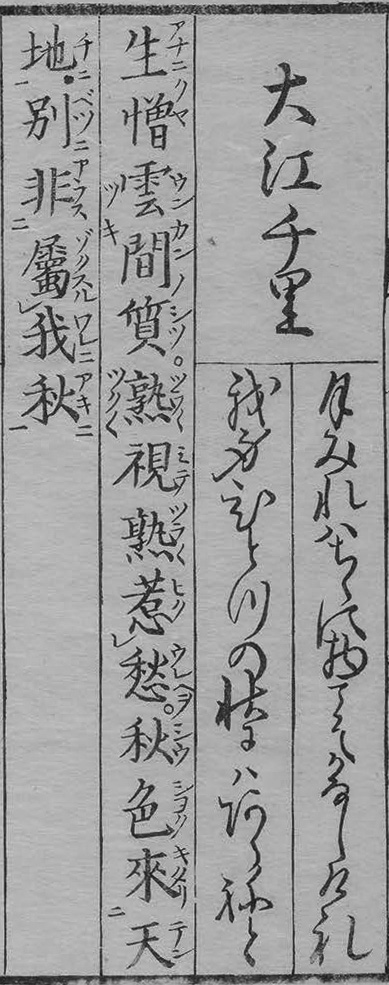 大江千里
月みれハちゝに物こそかなしけれ
我身ひとつの秋にハあらねと
生憎雲間質熟視熟惹愁秋色來天
地別非屬我秋